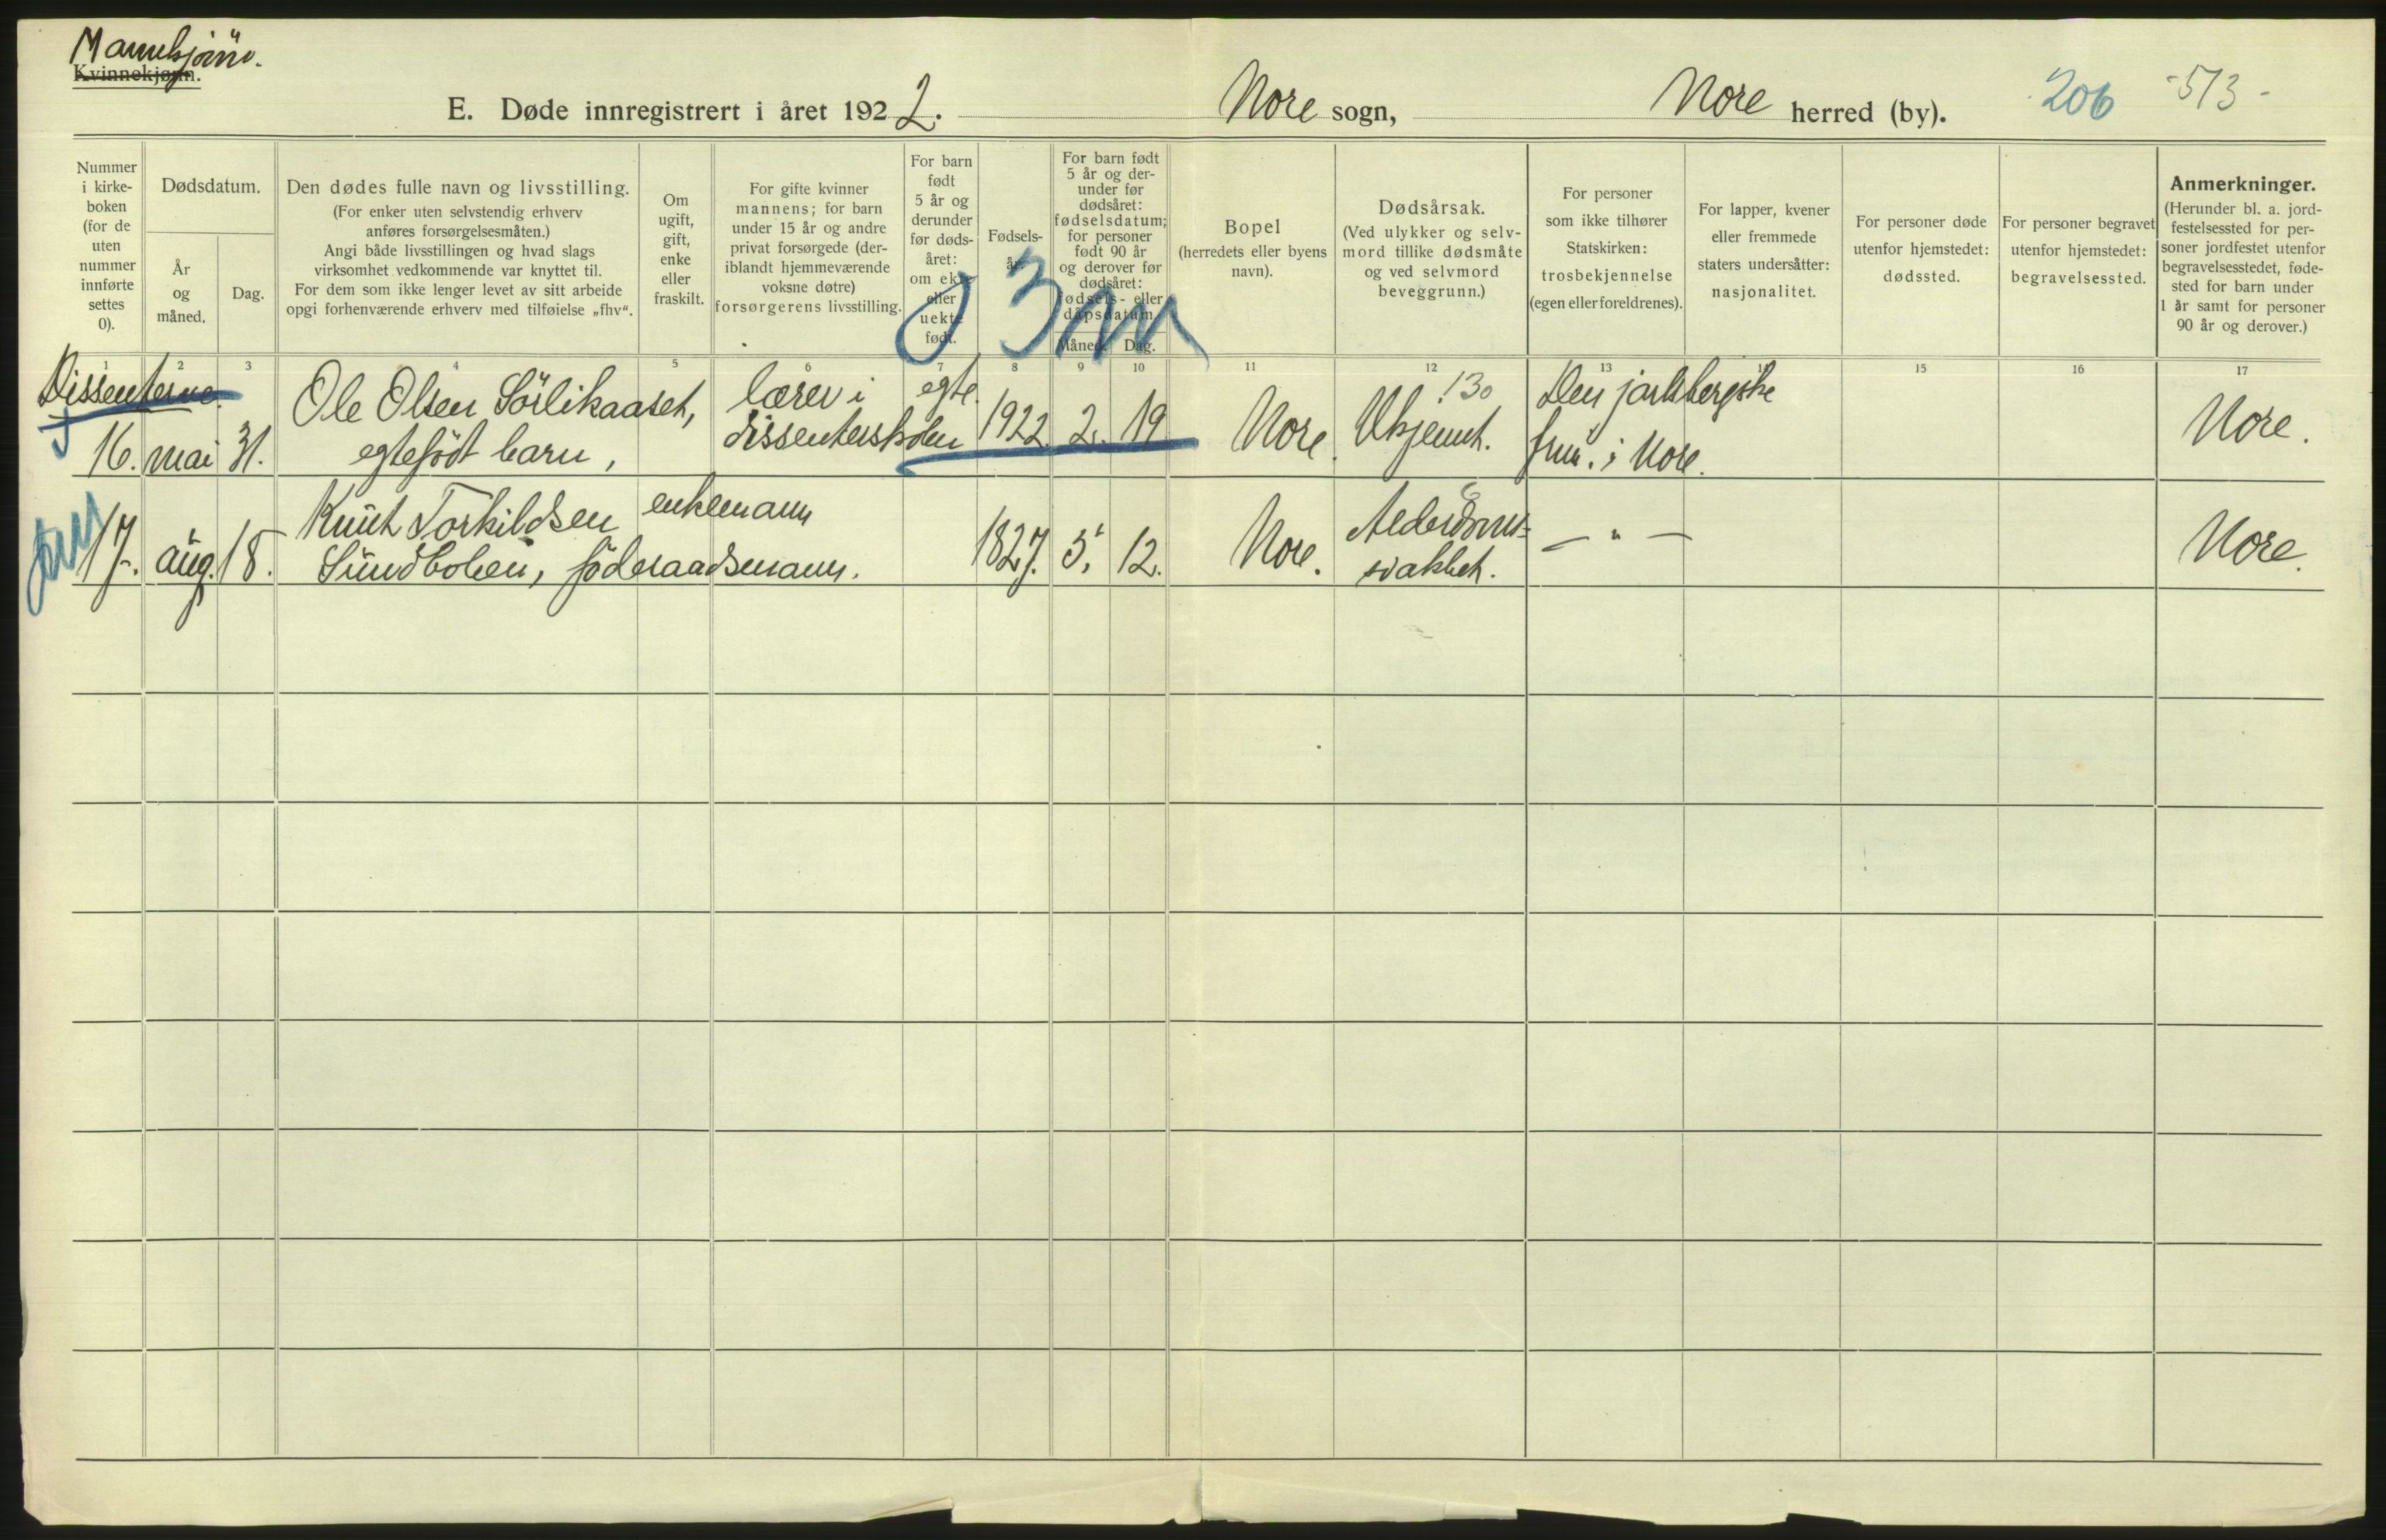 Mannkjønn.
Kvinnekjønn.
E. Døde innregistrert i året 1922. Nore sogn, Nore herred (by). 206 -513-
Nummer
i kirke-
boken
(for de
uten
nummer
innførte
settes
0).
Dødsdatum.
År
og
måned.
Dag.
Den dødes fulle navn og livsstilling.
(For enker uten selvstendig erhverv
anføres forsørgelsesmåten.)
Angi både livsstillingen og hvad slags
virksomhet vedkommende var knyttet til.
For dem som ikke lenger levet av sitt arbeide
opgi forhenværende erhverv med tilføielse „fhv“.
Om
ugift,
gift,
enke
eller
fraskilt.
For gifte kvinner
mannens; for barn
under 15 år og andre
privat forsørgede (der-
iblandt hjemmeværende
voksne døtre)
forsørgerens livsstilling.
For barn
født
5 år og
derunder
før døds-
året:
om ekte
eller
uekte
født.
Fødsels-
år.
For barn født
5 år og der-
under før
dødsåret:
fødselsdatum;
for personer
født 90 år
og derover før
dødsåret:
fødsels- eller
dåpsdatum
Måned.
Dag.
3 m
Bopel
(herredets eller byens
navn).
Dødsårsak.
(Ved ulykker og selv-
mord tillike dødsmåte
og ved selvmord
beveggrunn.)
For personer
som ikke tilhører
Statskirken:
trosbekjennelse
(egen eller foreldrenes).
For lapper, kvener
eller fremmede
staters undersåtter:
nasjonalitet.
For personer døde
utenfor hjemstedet:
dødssted.
For personer begravet
utenfor hjemstedet:
begravelsessted.
Anmerkninger.
(Herunder bl. a. jord-
festelsessted for per-
soner jordfestet utenfor
begravelsesstedet, føde-
sted for barn under
1 år samt for personer
90 år og derover.)
1 2 3 4 5 6 7 8 9 10 11 12 13 14 15 16 17
Dissenterne.
16. mai 31. Ole Olsen Sörlikaaset,
egtefödt barn,
lærer i
dissenterskolen
egte.
1922. 2. 19 Nore. Ukjennt. 130
Den jarlsbergske
frim. i Nore.
Nore.
17. aug. 18. Knut Torkildsen enkemann
Sundbolien, föderaadsmann.
1827. 5. 12. Nore. Alderdoms-
svakhet.
— " — Nore.